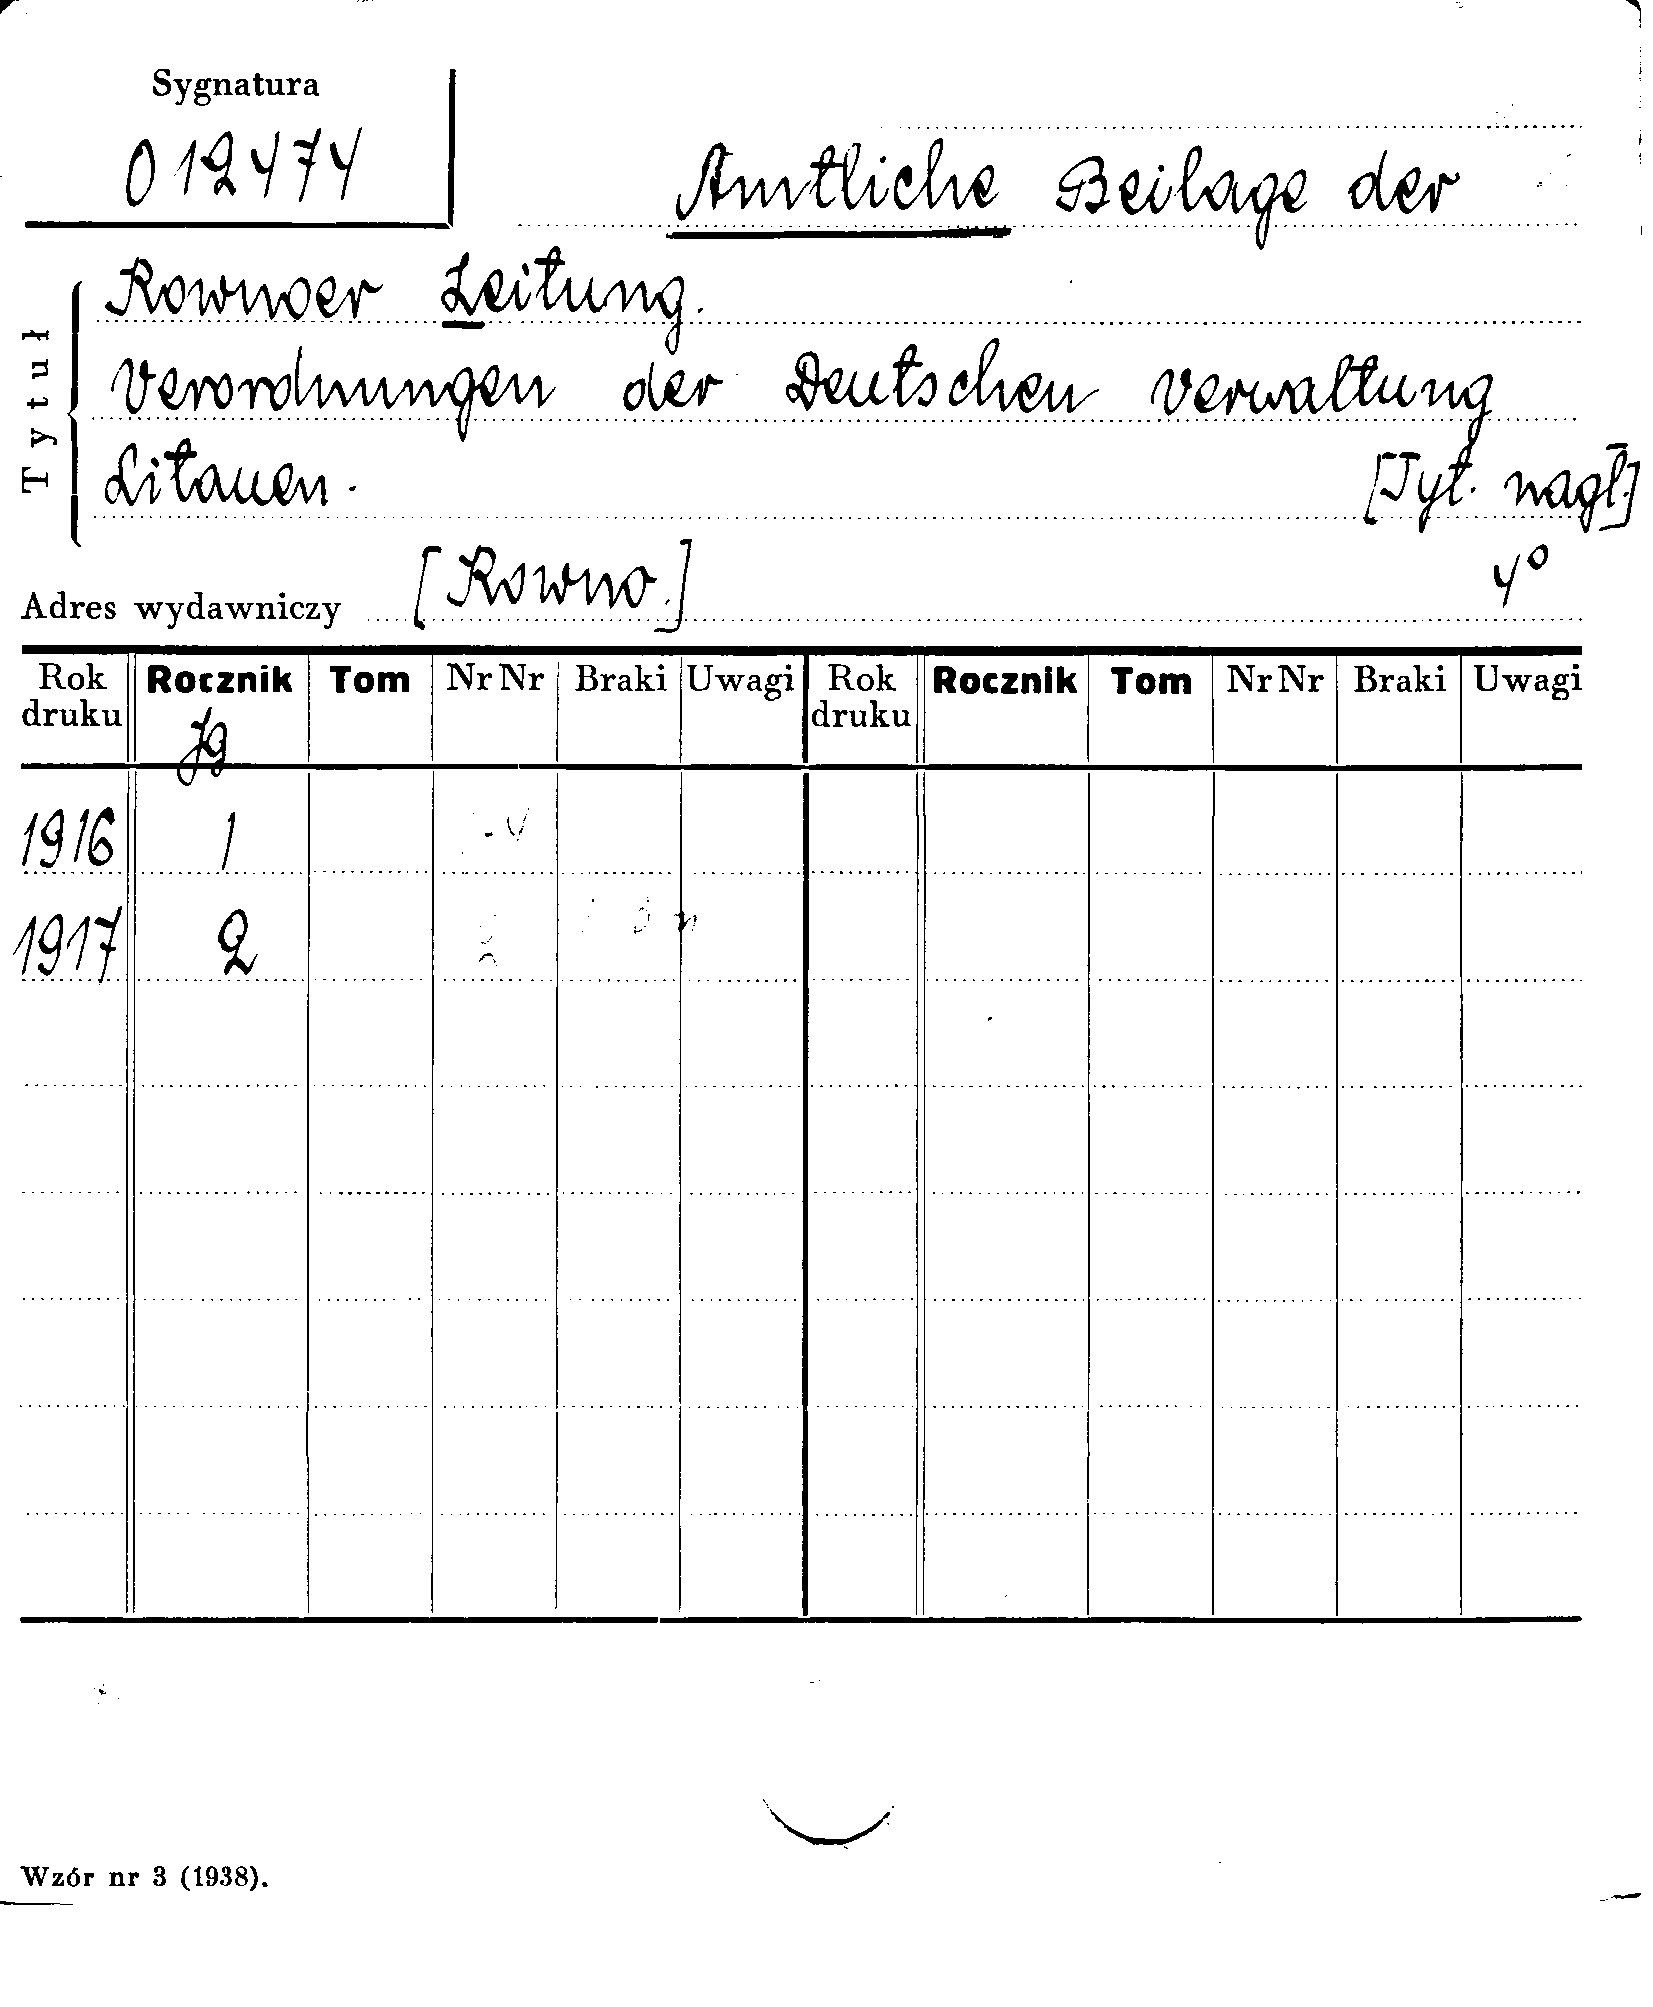 Sygnatura
012474
Amtliche Beilage der
Tytuł
Kownoer Zeitung.
Verordnungen der Deutschen Verwaltung
Litauen.
[Tyt. nagł.]
Adres wydawniczy [Kowno.] 4°
Rok druku Rocznik Tom Nr Nr Braki Uwagi Rok druku Rocznik Tom Nr Nr Braki Uwagi
Jg
1916 1
1917 2
Wzór nr 3 (1938).